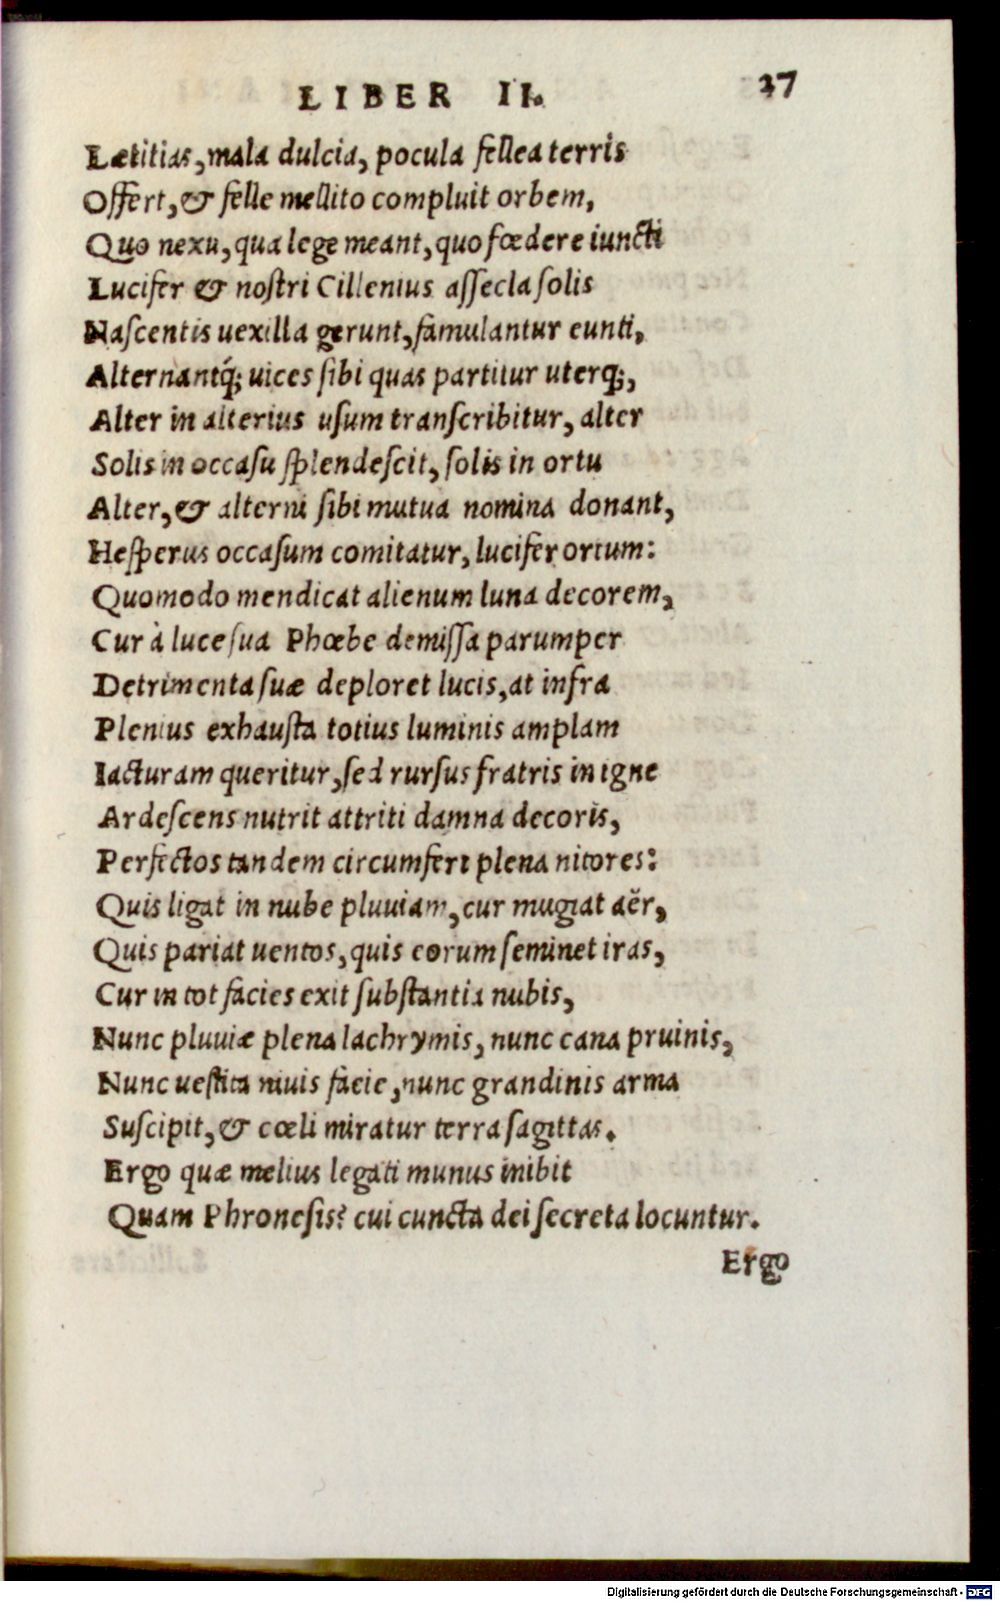 LIBER II. 27
Lætitias, mala dulcia, pocula fellea terris
Offert, & felle mellito compluit orbem,
Quo nexu, qua lege meant, quo fœdere iuncti
Lucifer & noſtri Cillenius aſſecla ſolis
Naſcentis uexilla gerunt, famulantur eunti,
Alternantq́; uices ſibi quas partitur uterq;,
Alter in alterius uſum tranſcribitur, alter
Solis in occaſu ſplendeſcit, ſolis in ortu
Alter, & alterni ſibi mutua nomina donant,
Heſperus occaſum comitatur, lucifer ortum:
Quomodo mendicat alienum luna decorem,
Cur à luce ſua Phœbe demiſſa parumper
Detrimenta ſuæ deploret lucis, at infra
Plenius exhauſta totius luminis amplam
Iacturam queritur, ſed rurſus fratris in igne
Ardeſcens nutrit attriti damna decoris,
Perfectos tandem circumfert plena nitores:
Quis ligat in nube pluuiam, cur mugiat aër,
Quis pariat uentos, quis eorum ſeminet iras,
Cur in tot facies exit ſubſtantia nubis,
Nunc pluuiæ plena lachrymis, nunc cana pruinis,
Nunc ueſtita niuis facie, nunc grandinis arma
Suſcipit, & cœli miratur terra ſagittas.
Ergo quæ melius legati munus inibit
Quam Phroneſis? cui cuncta dei ſecreta locuntur.
Ergo
Digitalisierung gefördert durch die Deutsche Forschungsgemeinschaft - DFG